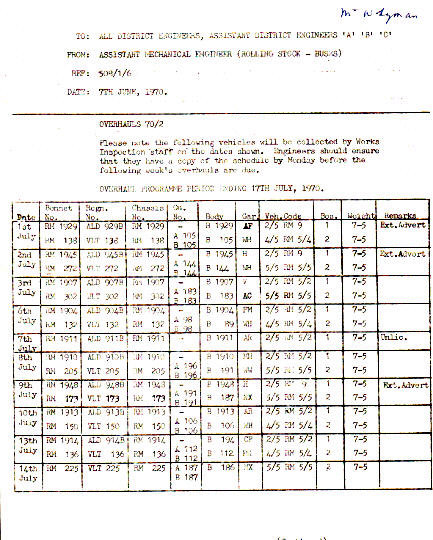 Mr W Lyman
TO: ALL DISTRICT ENGINEERS, ASSISTANT DISTRICT ENGINEERS 'A' 'B' 'C'
FROM: ASSISTANT MECHANICAL ENGINEER (ROLLING STOCK - BUSES)
REF: 509/1/6
DATE: 7TH JUNE, 1970.
OVERHAULS 70/2
Please note the following vehicles will be collected by Works
Inspection staff on the dates shown. Engineers should ensure
that they have a copy of the schedule by Monday before the
following week's overhauls are due.
OVERHAUL PROGRAMME PERIOD ENDING 17TH JULY, 1970.
Date Bonnet No. Regn. No. Chassis No. Ca. No. Body Gar. Veh.Code Bos. Weight Remarks
1st July RM 1929 ALD 929B RM 1929 - B 1929 AF 2/5 RM 9 1 7-5 Ext.Advert
RM 138 VLT 138 RM 138 A 105 B 105 B 105 WH 4/5 RM 5/4 2 7-5
2nd July RM 1945 ALD 945B RM 1945 - B 1945 H 2/5 RM 9 1 7-5 Ext.Advert
RM 272 VLT 272 RM 272 A 144 B 144 B 144 WH 5/5 RM 5/5 2 7-5
3rd July RM 1907 ALD 907B RM 1907 - B 1907 V 2/5 RM 5/2 1 7-5
RM 302 VLT 302 RM 302 A 183 B 183 B 183 AC 5/5 RM 5/5 2 7-5
6th July RM 1904 ALD 904B RM 1904 - B 1904 2/5 RM 5/2 1 7-5
RM 132 VLT 132 RM 132 A 98 B 98 B 89 WH 4/5 RM 5/4 2 7-5
7th July RM 1911 ALD 911B RM 1911 - B 1911 AR 2/5 RM 5/2 1 7-5 Unlic.
8th July RM 1910 ALD 910B RM 1910 - B 1910 2/5 RM 5/2 1 7-5
RM 205 VLT 205 RM 205 A 196 B 196 B 191 5/5 RM 5/5 2 7-5
9th July RM 1948 ALD 948B RM 1948 - B 1948 H 2/5 RM 9 1 7-5 Ext.Advert
RM 173 VLT 173 RM 173 A 191 B 191 B 187 NX 5/5 RM 5/5 2 7-5
10th July RM 1913 ALD 913B RM 1913 - B 1913 AR 2/5 RM 5/2 1 7-5
RM 150 VLT 150 RM 150 A 106 B 106 B 106 WH 4/5 RM 5/4 2 7-5
13th July RM 1914 ALD 914B RM 1914 - B 194 2/5 RM 5/2 1 7-5
RM 136 VLT 136 RM 136 A 112 B 112 B 112 4/5 RM 5/4 2 7-5
14th July RM 225 VLT 225 RM 225 A 187 B 187 B 186 NX 5/5 RM 5/5 2 7-5